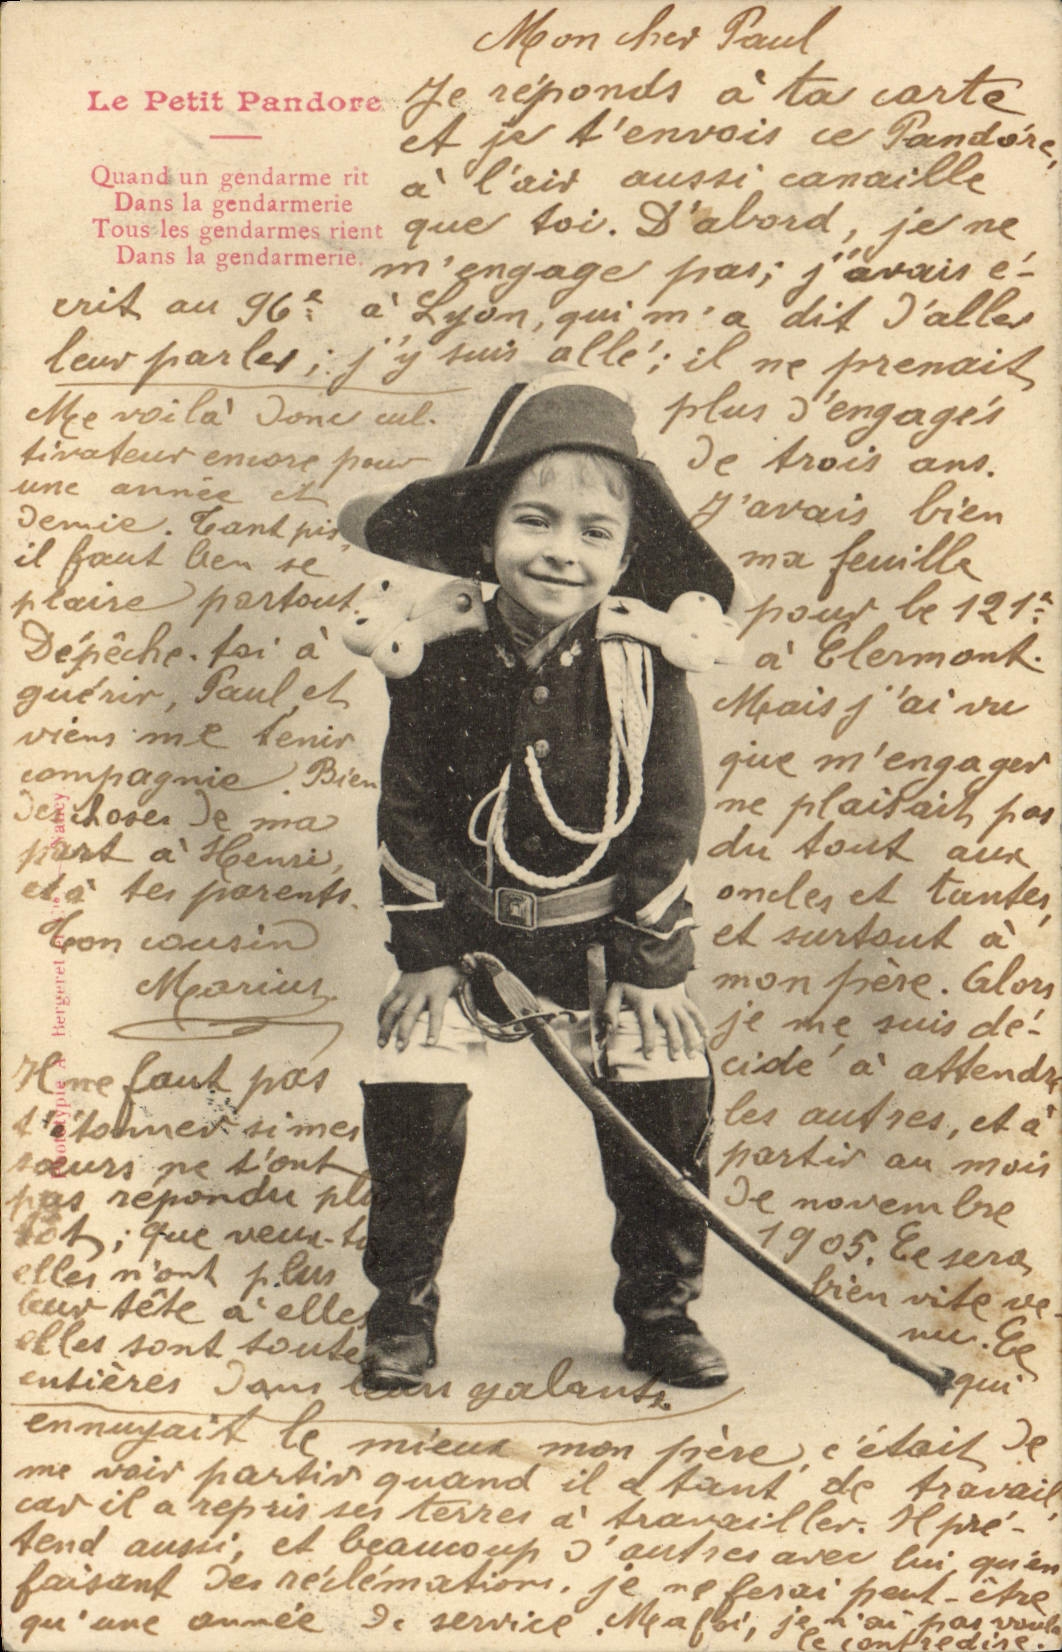 Mon cher Paul
Je réponds à ta carte
et je t'envois ce Pandore,
à l'air aussi canaille
que toi. D'abord, je ne
m'engage pas; j'avais é-
crit au 96e à Lyon, qui m'a dit d'aller
leur parler; j'y suis allé; il ne prenait
plus d'engagés
de trois ans.
J'avais bien
ma feuille
pour le 121e
à Clermont.
Mais j'ai vu
que m'engager
ne plaisait pas
du tout aux
oncles et tantes,
et surtout à
mon père. Alors
je me suis dé-
cidé à attendre
les autres, et à
partir au mois
de novembre
1905. Ce sera
bien vite ve-
nu. Ce
qui
ennuyait le mieux mon père, c'était de
me voir partir quand il a tant de travail
car il a repris ses terres à travailler. Il pré-
tend aussi, et beaucoup d'autres avec lui, qu'en
faisant des réclamations, je ne ferai peut-être
qu'une année de service. Ma foi, je n'ai pas voulu
le contredire.
Me voilà donc cul-
tivateur encore pour
une année et
demie. Tant pis,
il faut bien se
plaire partout.
Dépêche-toi à
guérir, Paul, et
viens me tenir
compagnie. Bien
des choses de ma
part à Henri,
et à tes parents.
Ton cousin
Marius.
Il ne faut pas
t'étonner si mes
sœurs ne t'ont
pas répondu plus
tôt; que veux-tu
elles n'ont plus
leur tête à elles
elles sont toute
entières dans leurs galants.
Le Petit Pandore
Quand un gendarme rit
Dans la gendarmerie
Tous les gendarmes rient
Dans la gendarmerie.
Phototypie A. Bergeret et Cie Nancy